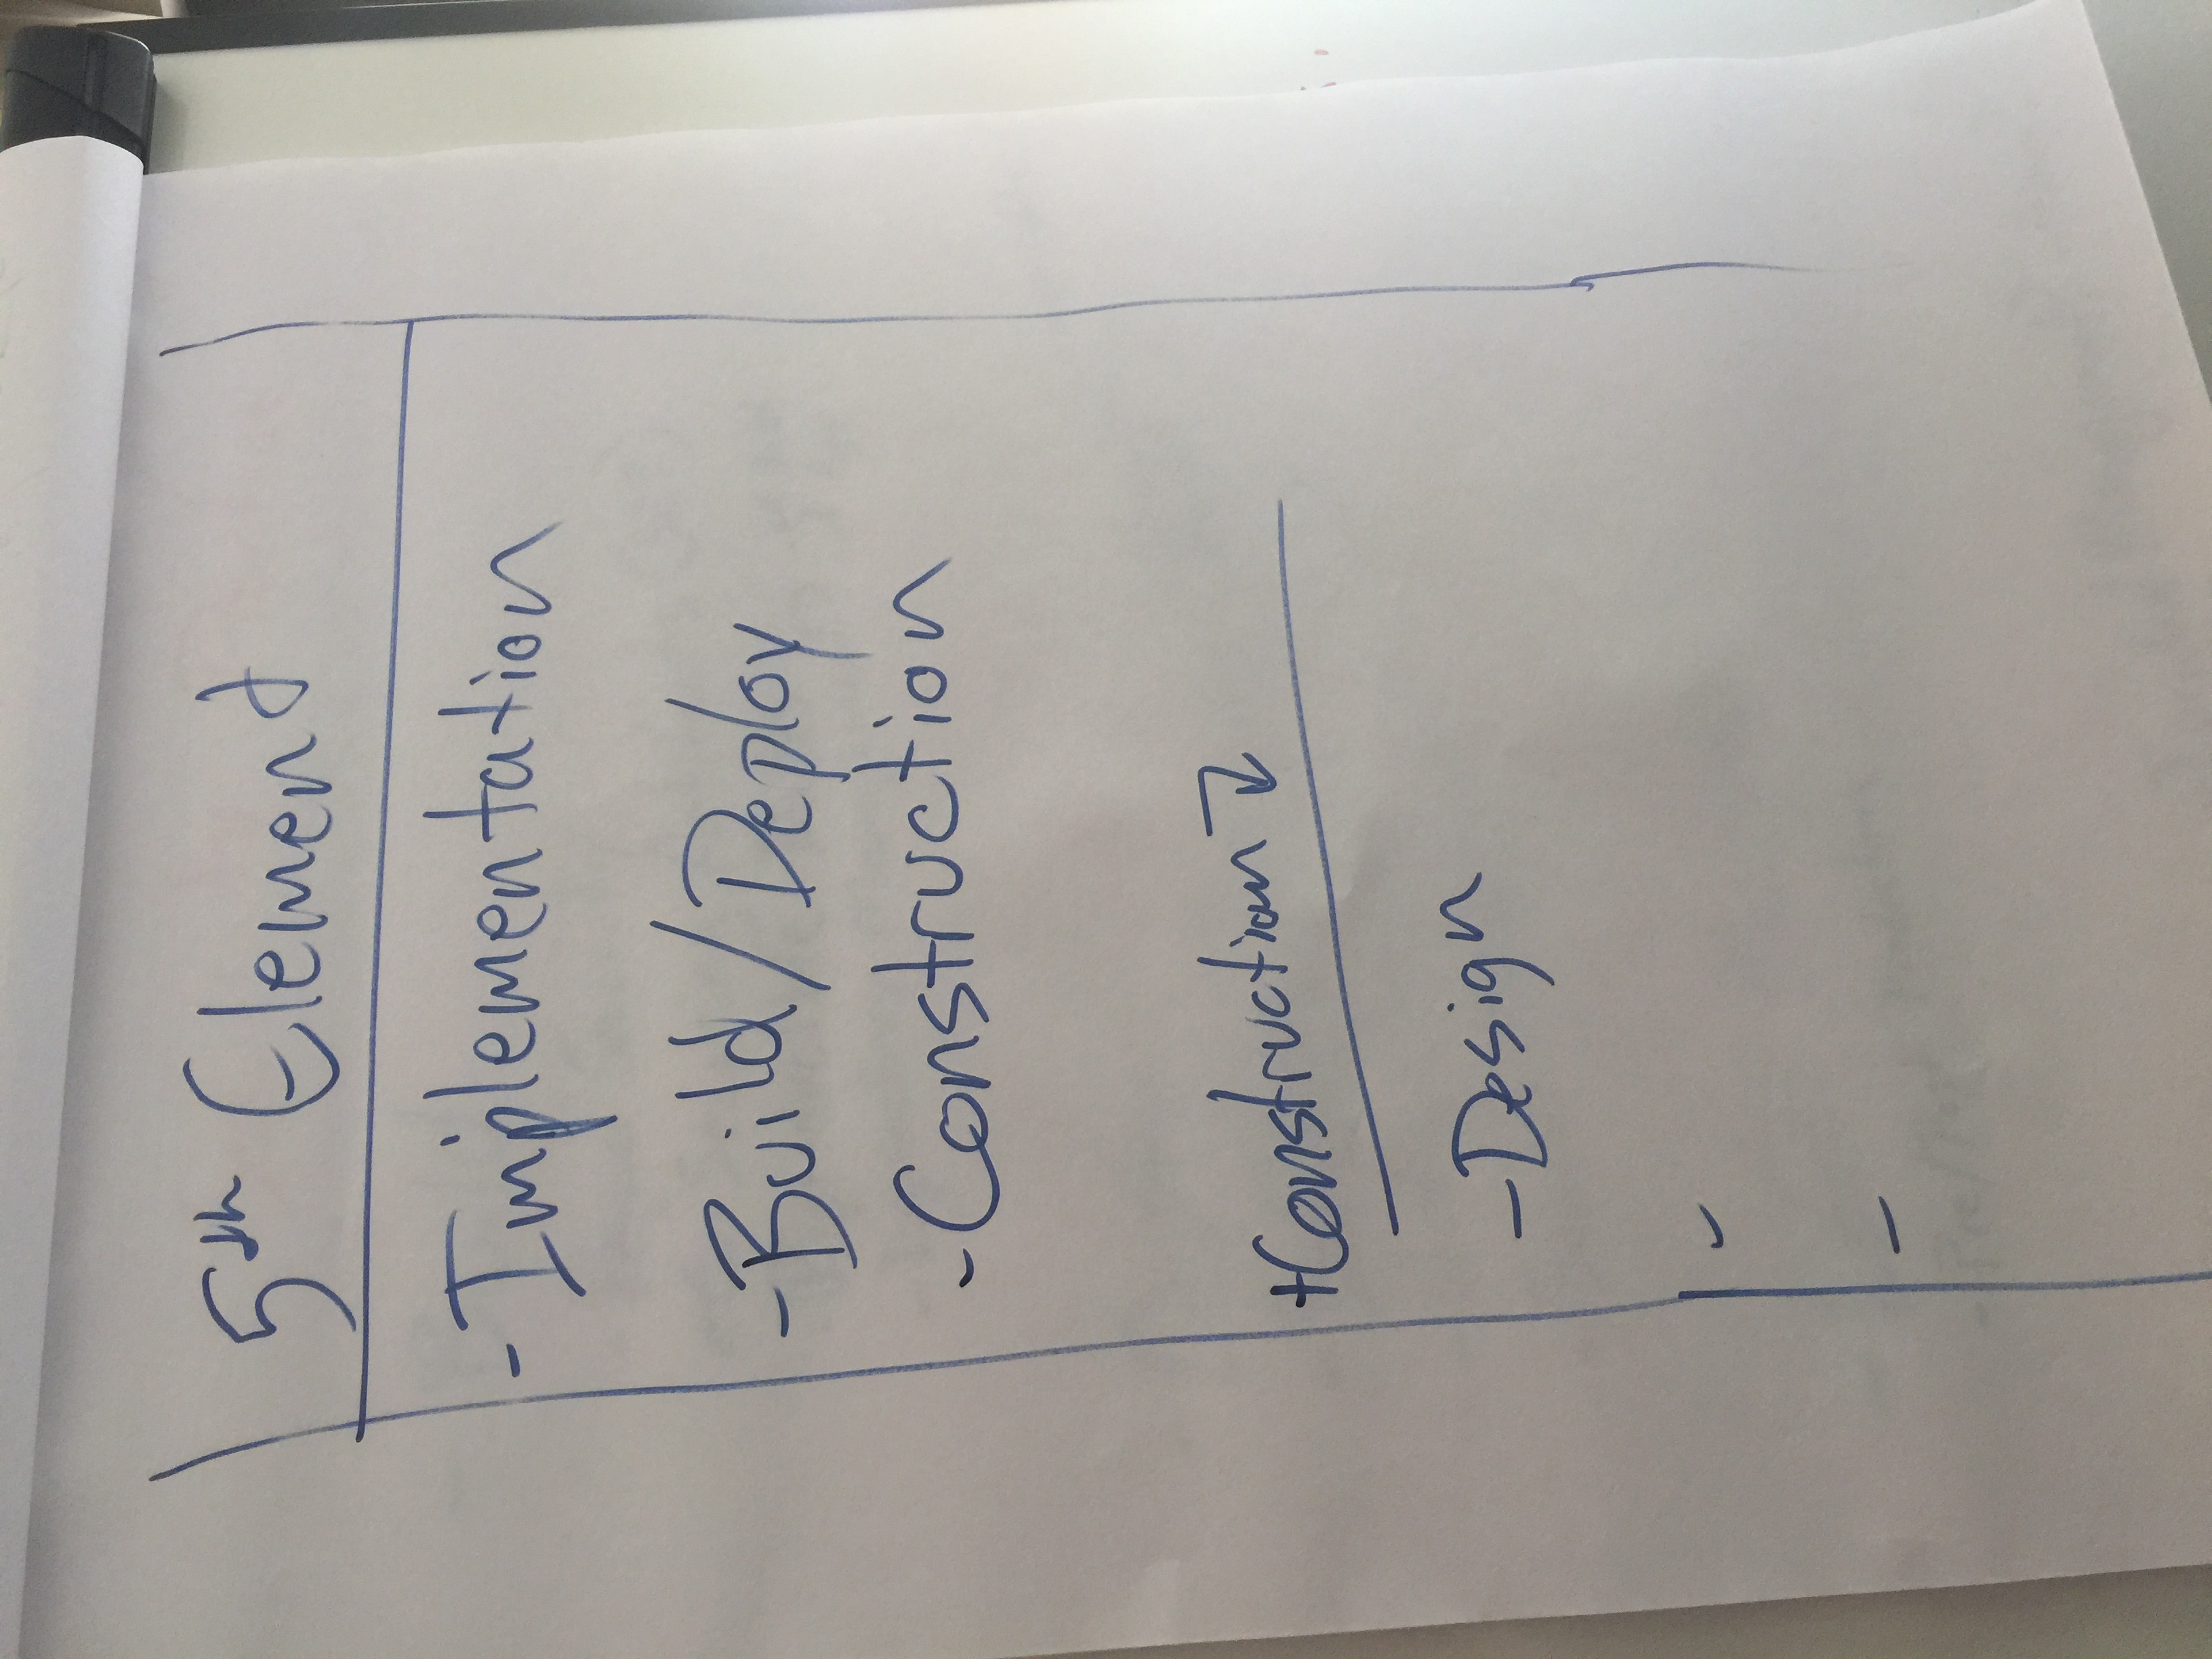 5th Element
- Implementation
- Build/Deploy
- Construction
+Construction ↴
- Design
-
-